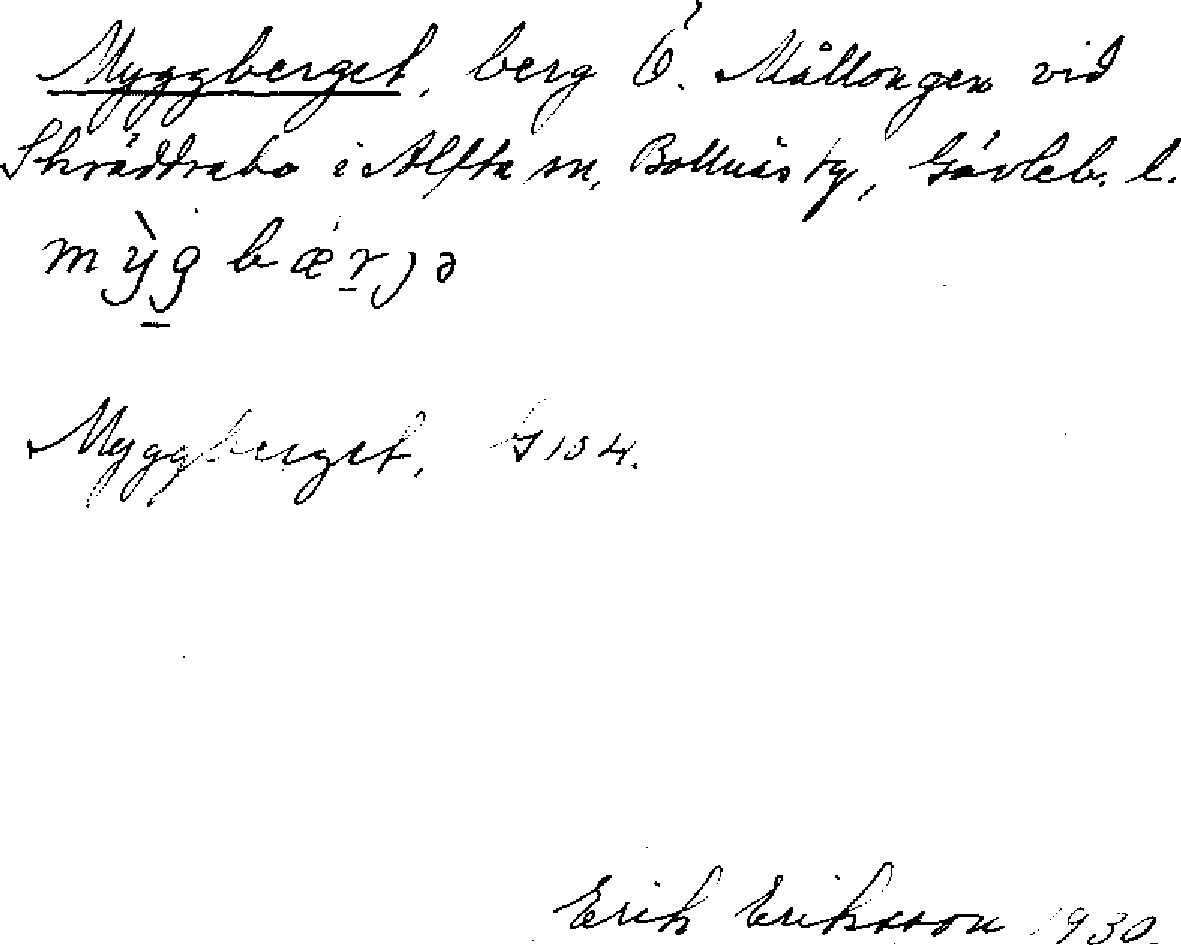 Myggberget, berg Ö. Mållongen vid
Skräddrabo i Alfta sn, Bollnäs tg, Gävleb. l.
mỳg bǽrjə
Myggberget, G 104.
Erik Eriksson 1930.